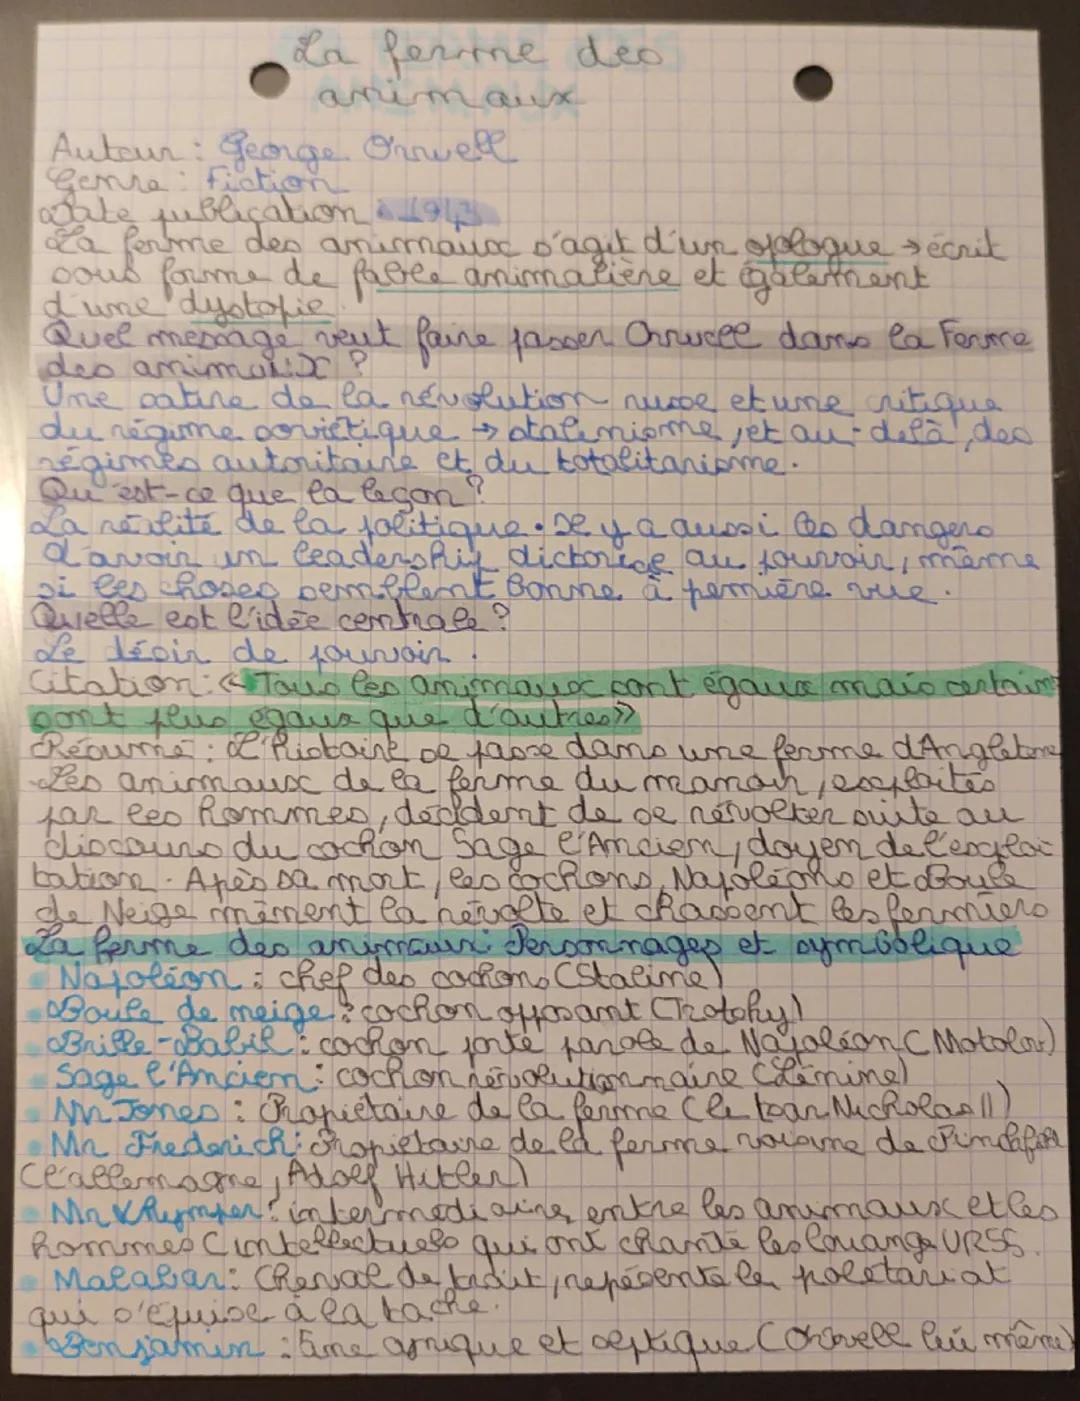 La ferme des
animaux
Auteur : George Orwell
Genre : Fiction
Date publication : 1943
La ferme des animaux s'agit d'un apologue → écrit
sous forme de fable animalière et également
d'une dystopie.
Quel message veut faire passer Orwell dans la Ferme
des animaux ?
Une satire de la révolution russe et une critique
du régime soviétique → stalinisme, et au-delà, des
régimes autoritaire et du totalitarisme.
Qu'est-ce que la leçon ?
La réalité de la politique. Il y a aussi les dangers
d'avoir un leadership au pouvoir, même
si les choses semblent bonne à première vue.
Quelle est l'idée centrale ?
Le désir de pouvoir.
Citation : « Tous les animaux sont égaux mais certains
sont plus égaux que d'autres »
Résumé : L'histoire se passe dans une ferme d'Angleterre
Les animaux de la ferme du manoir, exploités
par les hommes, décident de se révolter suite au
discours du cochon Sage l'Ancien, doyen de l'exploi
tation. Après sa mort, les cochons, Napoléons et Boule
de Neige mènent la révolte et chassent les fermiers
La ferme des animaux : Personnages et symbolique
Napoléon : chef des cochons (Staline)
Boule de neige : cochon opposant (Trotsky)
Brille-Babil : cochon porte parole de Napoléon (Motolov)
Sage l'Ancien : cochon révolutionnaire (Lénine)
Mr Jones : Propiétaire de la ferme (le tsar Nicholas II)
Mr Frederich : Propiétaire de la ferme voisine de Pinchfield
(l'allemagne, Adolf Hitler)
Mr Whymper : intermédiaire entre les animaux et les
hommes (intellectuels qui ont chanté les louange URSS.
Malabar : Cheval de trait, repésente le poletariat
qui s'épuise à la tache.
Benjamin : âne amique et septique (Orwell lui même)